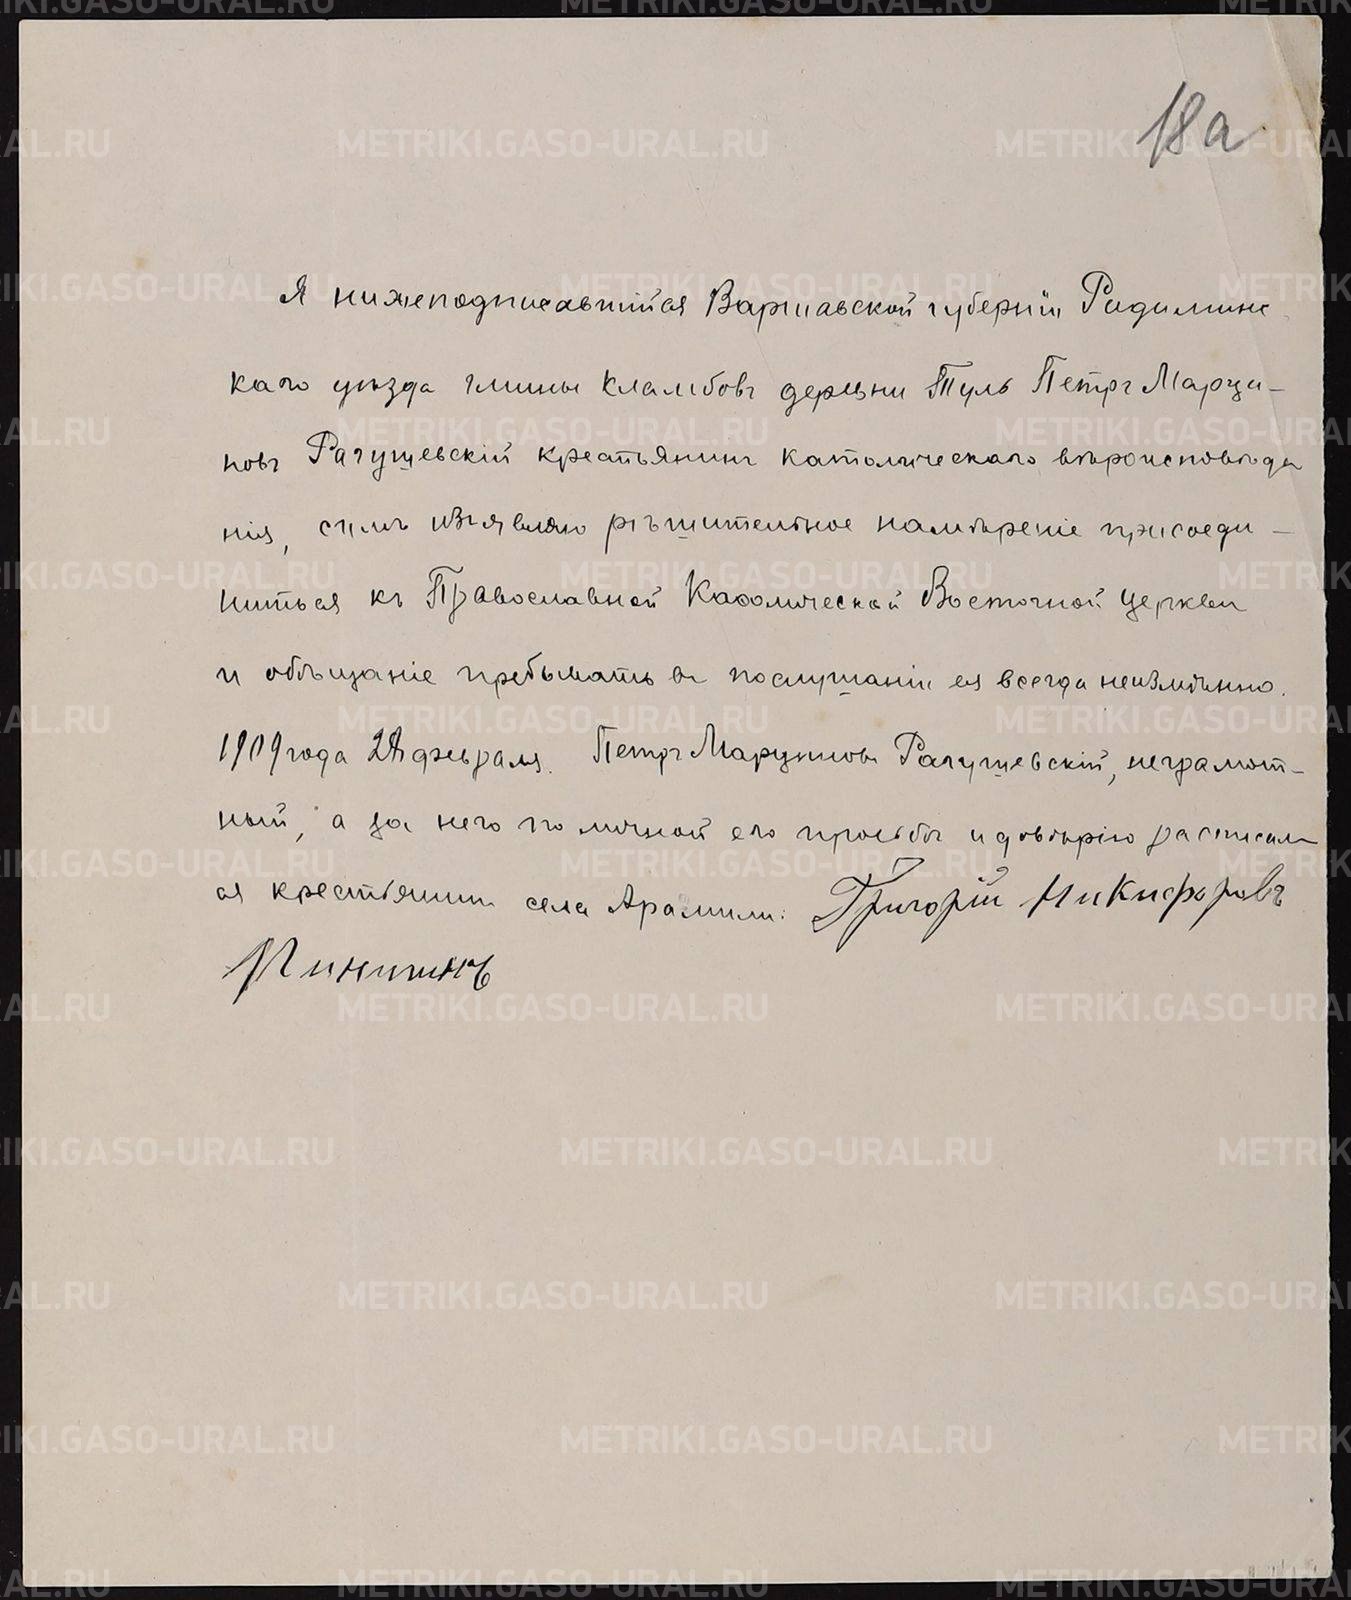 18а
Я нижеподписавшійся Варшавской губерніи Радиминс
каго уѣзда гмины Кламбовъ деревни Туль Петръ Марци-
новъ Рагушевскій крестьянинъ католическаго вѣроисповѣда
нія, симъ изъявляю рѣшительное намѣреніе присоеди-
ниться къ Православной Каѳолической Восточной Церкви
и обѣщаніе пребывать въ послушаніи ея всегда неизмѣнно.
1909 года февраля. Петръ Марциновъ Рагушевскій, неграмот-
ный, а за него по личной его просьбѣ и довѣрію расписал
ся крестьянинъ села Арамили: Григорій Никифоровъ